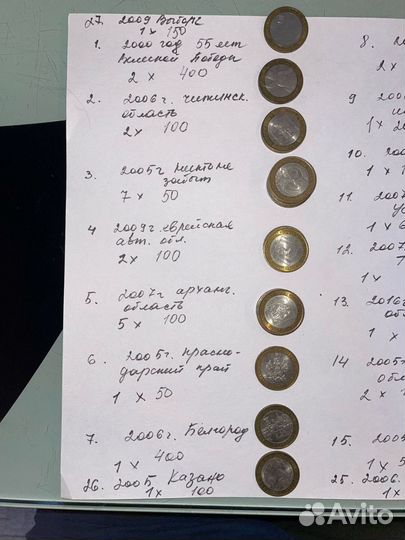 27. 2009 Выборг
1 x 150
1. 2000 год 55 лет
Великой Победы
2 x 400
2. 2006 г. читинск.
область
2 x 100
3. 2005 г никто не
забыт
7 x 50
4 2009 г. еврейская
авт. обл.
2 x 100
5. 2007 г арханг.
область
5 x 100
6. 2005 г. Красно-
дарский край
1 x 50
7. 2006 г. Белгород
1 x 400
26. 2005 Казань
1 x 100
8.
2 x
9
1 x
10.
1 x
11.
1 x 6
12. 2007
1 x
13. 2016
об
1 x
14 2005
обл
2 x
15. 200
1 x 5
25. 2006
1 x
Avito